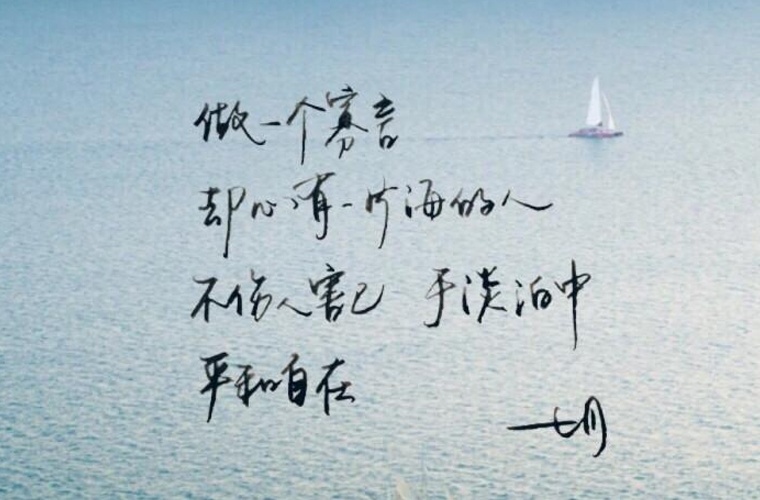 做一个寡言
却心有一片海的人
不伤人害己 于淡泊中
平和自在
——七月